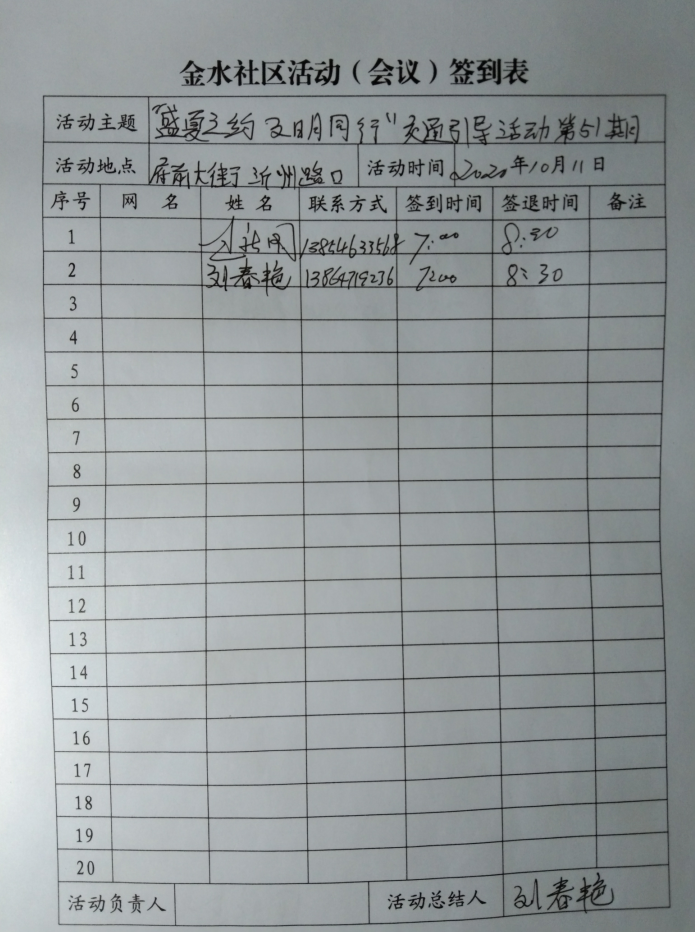 金水社区活动（会议）签到表
活动主题 “盛夏之约 文明同行”交通引导活动第51期
活动地点 府前大街沂州路口 活动时间 2020年10月11日
序号 网名 姓名 联系方式 签到时间 签退时间 备注
1 13854633568 7:00 8:30
2 刘春艳 13864719236 7:00 8:30
3
4
5
6
7
8
9
10
11
12
13
14
15
16
17
18
19
20
活动负责人 活动总结人 刘春艳